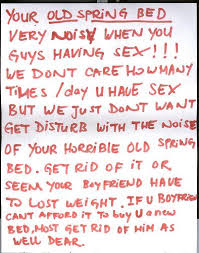 YOUR OLD SPRING BED
VERY NOISY WHEN YOU
GUYS HAVING SEX!!!
WE DONT CARE HOWMANY
TIMES /DAY U HAVE SEX
BUT WE JUST DONT WANT
GET DISTURB WITH THE NOISE
OF YOUR HORRIBLE OLD SPRING
BED. GET RID OF IT OR
SEEM YOUR BOYFRIEND HAVE
TO LOST WEIGHT. IF U BOYFRIEN
CANT AFFORD IT TO BUY U A NEW
BED, MOST GET RID OF HIM AS
WELL DEAR.